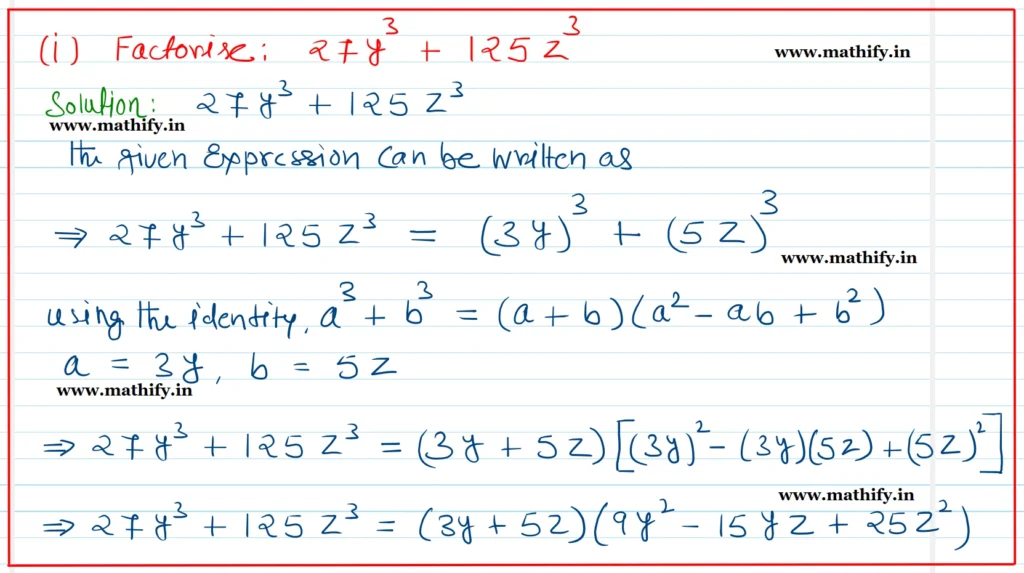 (i) Factorise: 27y³ + 125z³
www.mathify.in
Solution: 27y³ + 125z³
www.mathify.in
The given Expression can be written as
⇒ 27y³ + 125z³ = (3y)³ + (5z)³
www.mathify.in
using the identity, a³ + b³ = (a + b)(a² - ab + b²)
a = 3y, b = 5z
www.mathify.in
⇒ 27y³ + 125z³ = (3y + 5z)[(3y)² - (3y)(5z) + (5z)²]
www.mathify.in
⇒ 27y³ + 125z³ = (3y + 5z)(9y² - 15yz + 25z²)